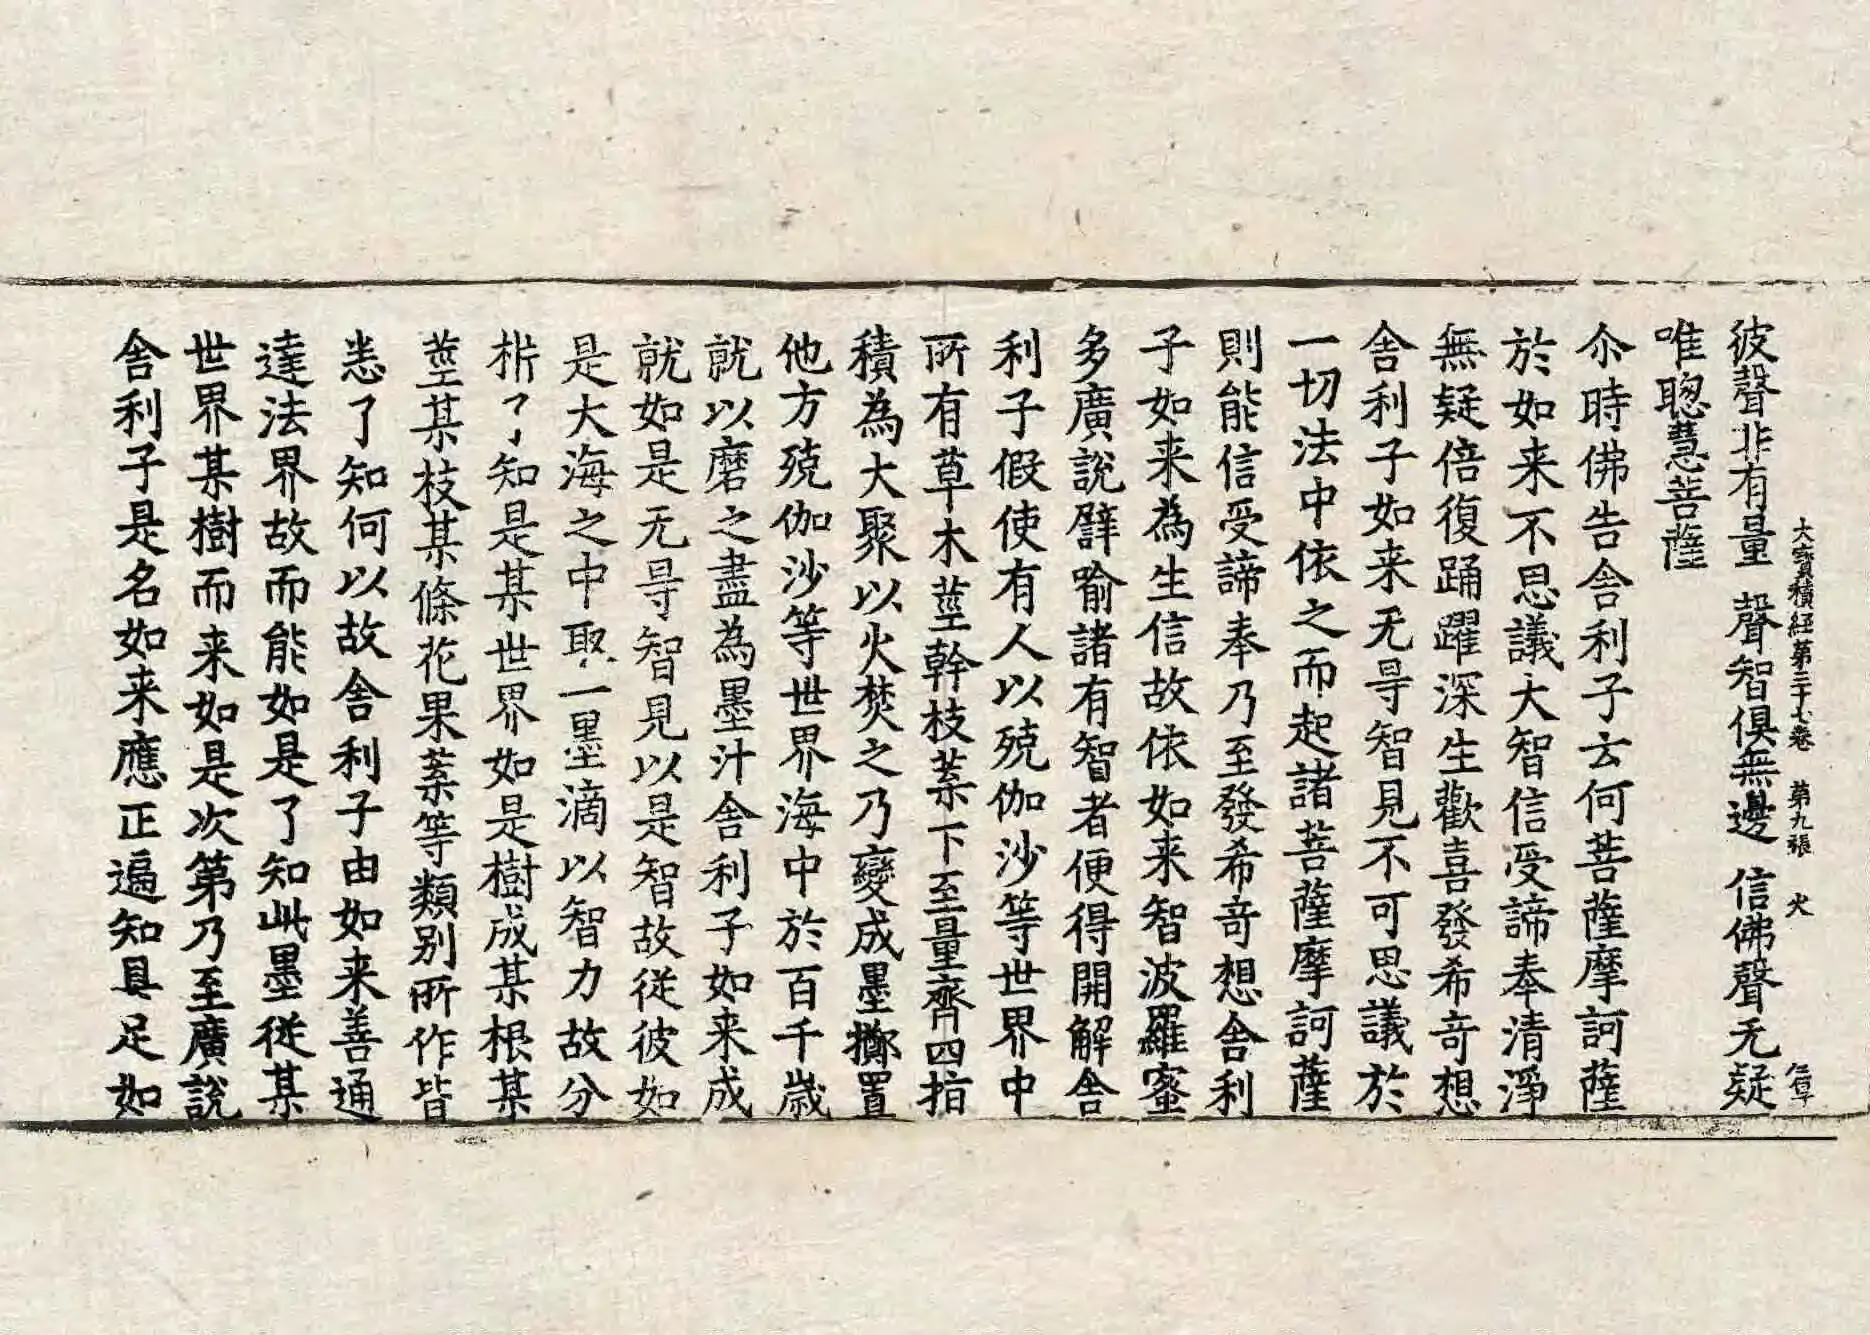 大寶積經第三十七卷 第九張 火
彼聲非有量 聲智俱無邊 信佛聲无疑
唯聰慧菩薩
尒時佛告舍利子云何菩薩摩訶薩
於如来不思議大智信受諦奉清淨
無疑倍復踊躍深生歡喜發希奇想
舍利子如来无㝵智見不可思議於
一切法中依之而起諸菩薩摩訶薩
則能信受諦奉乃至發希奇想舍利
子如来為生信故依如来智波羅蜜
多廣說譬喻諸有智者便得開解舍
利子假使有人以殑伽沙等世界中
所有草木莖幹枝葉下至量齊四指
積為大聚以火焚之乃變成墨擲置
他方殑伽沙等世界海中於百千歲
就以磨之盡為墨汁舍利子如来成
就如是无㝵智見以是智故從彼如
是大海之中取一墨滴以智力故分
析了知是某世界如是樹成某根某
莖某枝某條花果葉等類別所作皆
悉了知何以故舍利子由如来善通
達法界故而能如是了知此墨從某
世界某樹而来如是次第乃至廣說
舍利子是名如来應正遍知具足如